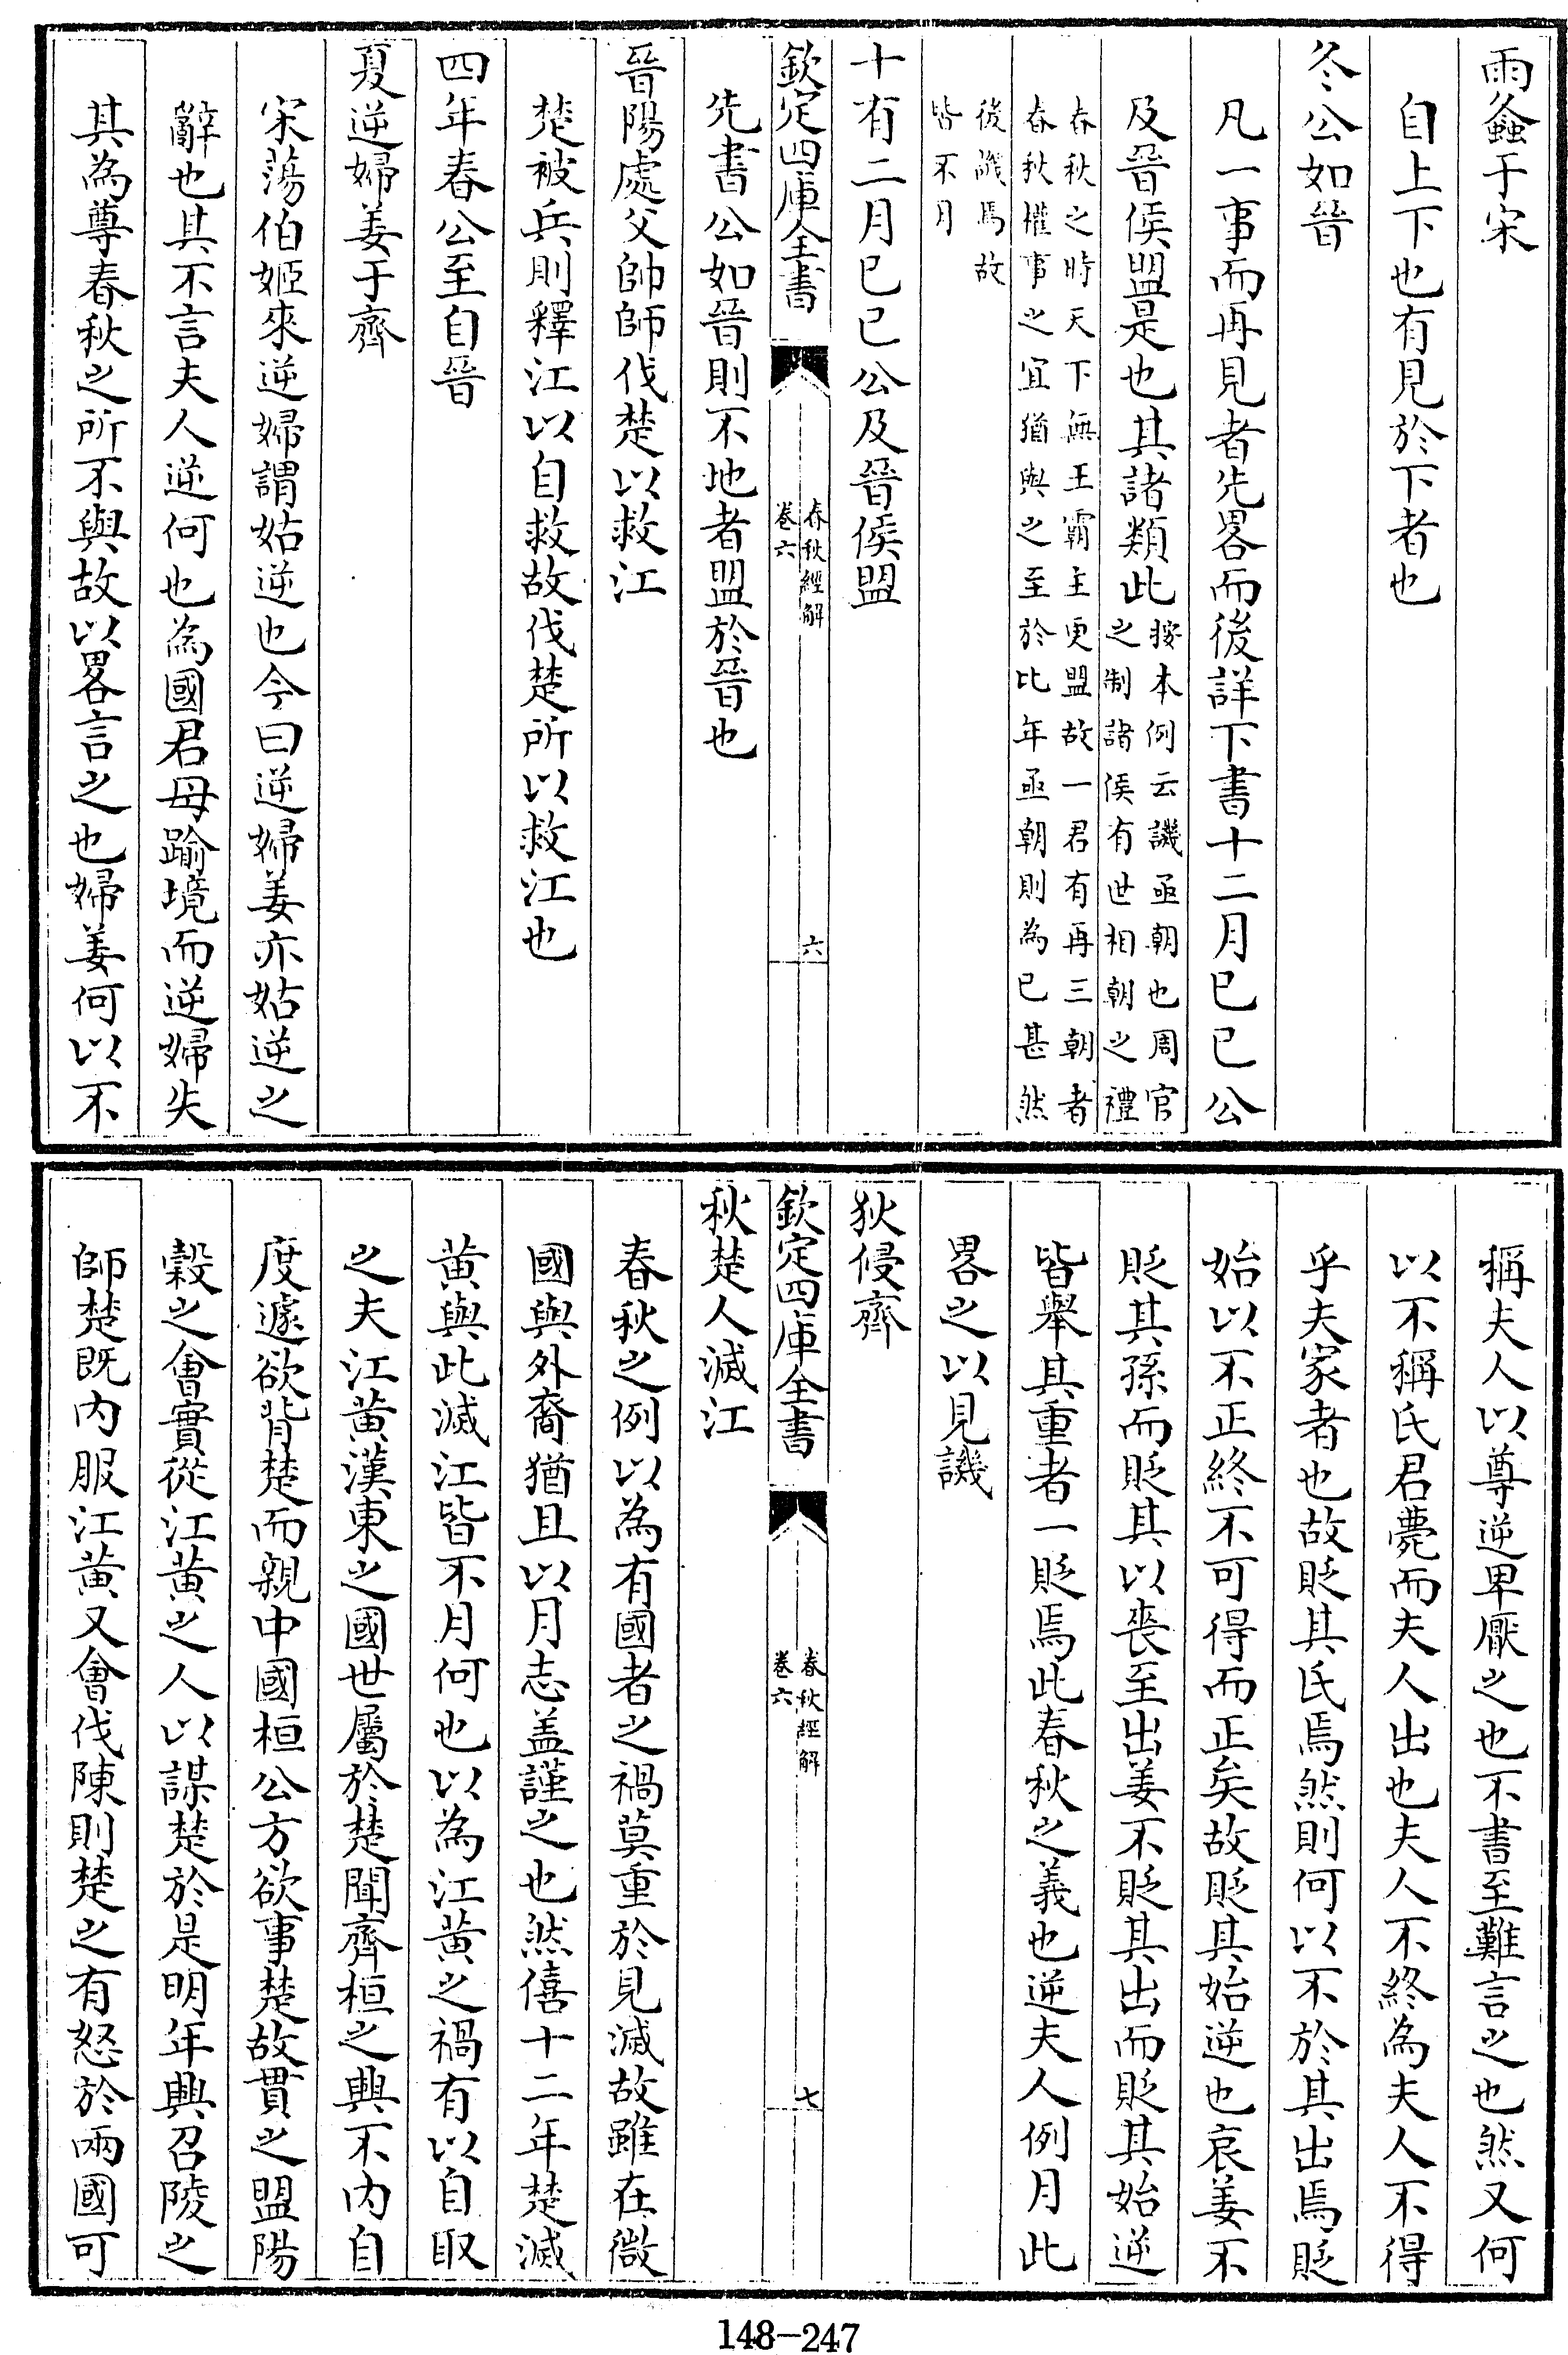 雨螽于宋
自上下也有見於下者也
冬公如晉
凡一事而再見者先畧而後詳下書十二月已已公
及晉侯盟是也其諸類此按本例云譏亟朝也周官之制諸侯有世相朝之禮
春秋之時天下無王霸主更盟故一君有再三朝者春秋權事之宜猶與之至於比年亟朝則為已甚然
後譏焉故皆不月
十有二月已已公及晉侯盟
欽定四庫全書
春秋經解
卷六
六
先書公如晉則不地者盟於晉也
晉陽處父帥師伐楚以救江
楚被兵則釋江以自救故伐楚所以救江也
四年春公至自晉
夏逆婦姜于齊
宋蕩伯姬來逆婦謂姑逆也今曰逆婦姜亦姑逆之
辭也其不言夫人逆何也為國君母踰境而逆婦失
其為尊春秋之所不與故以畧言之也婦姜何以不
稱夫人以尊逆卑厭之也不書至難言之也然又何
以不稱氏君薨而夫人出也夫人不終為夫人不得
乎夫家者也故貶其氏焉然則何以不於其出焉貶
始以不正終不可得而正矣故貶其始逆也哀姜不
貶其孫而貶其以喪至出姜不貶其出而貶其始逆
皆舉其重者一貶焉此春秋之義也逆夫人例月此
畧之以見譏
狄侵齊
欽定四庫全書
春秋經解
卷六
七
秋楚人滅江
春秋之例以為有國者之禍莫重於見滅故雖在微
國與外裔猶且以月志盖謹之也然僖十二年楚滅
黄與此滅江皆不月何也以為江黄之禍有以自取
之夫江黄漢東之國世屬於楚聞齊桓之興不內自
度遽欲背楚而親中國桓公方欲事楚故貫之盟陽
榖之會實從江黄之人以謀楚於是明年興召陵之
師楚既內服江黄又會伐陳則楚之有怒於兩國可
148-247